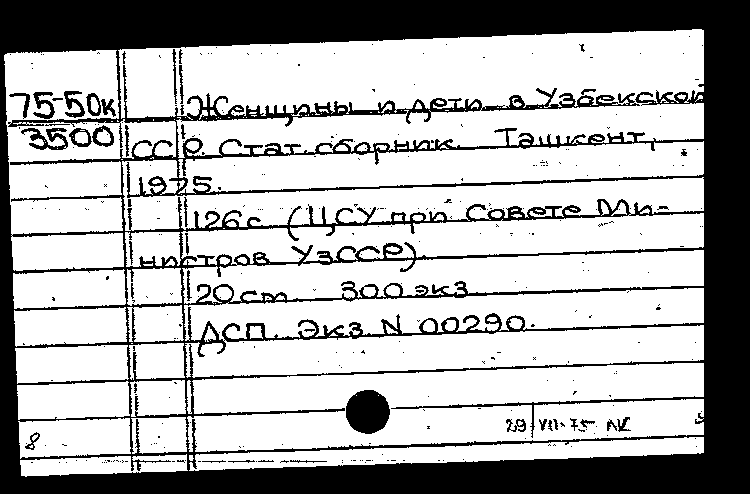 75-50к Женщины и дети в Узбекской
3500 ССР. Стат. сборник. Ташкент,
1975.
126с (ЦСУ при Совете Ми-
нистров УзССР).
20 см. 300 экз.
ДСП. Экз. N 00290.
29 VII-75
8